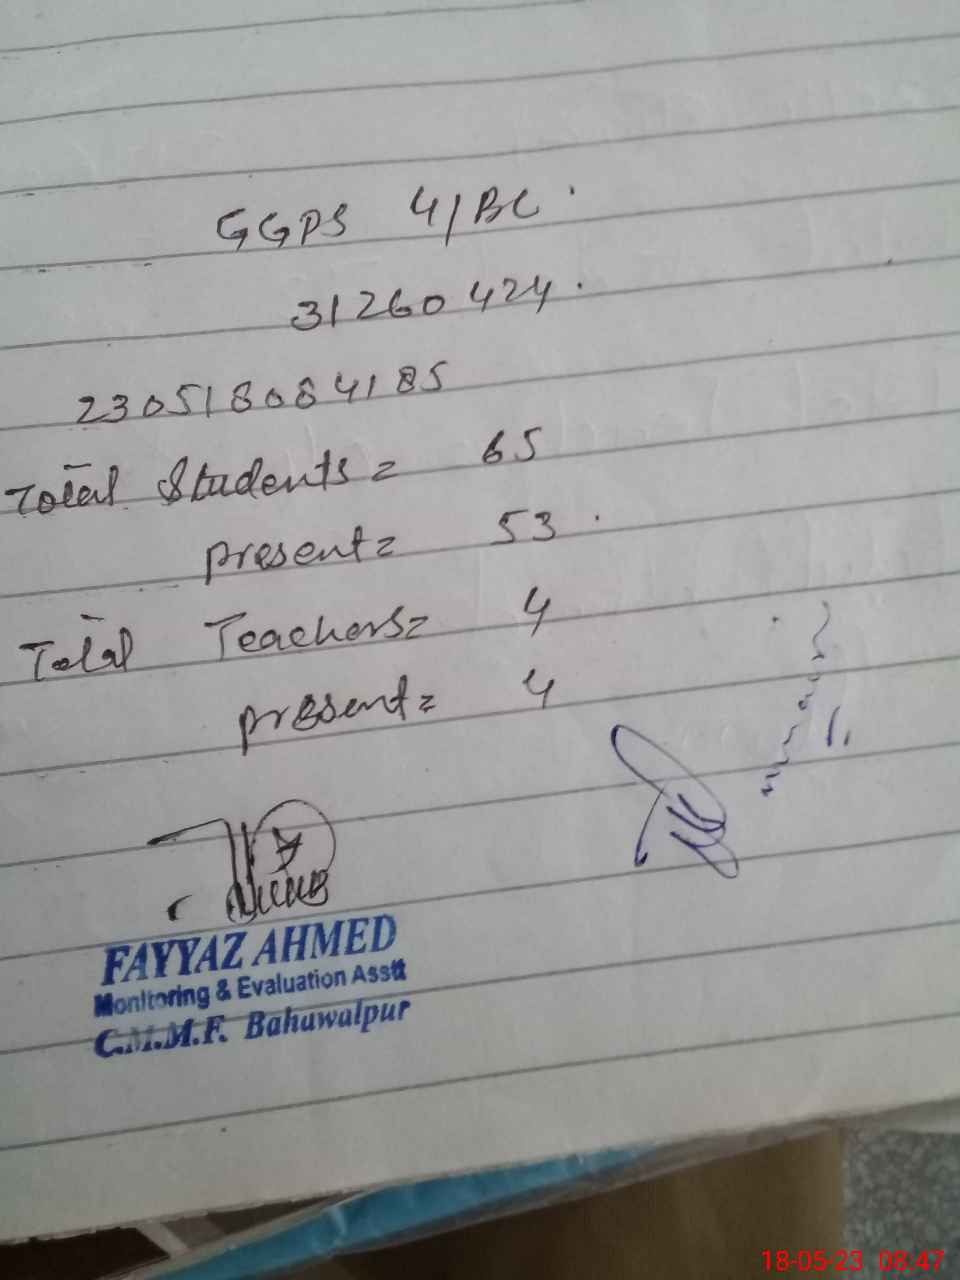 GGPS 4/BC.
31260424.
230518084185
Total Students= 65
present= 53.
Total Teachers= 4
present= 4
FAYYAZ AHMED
Monitoring & Evaluation Asstt
C.M.M.F. Bahawalpur
18-05-23 08:47